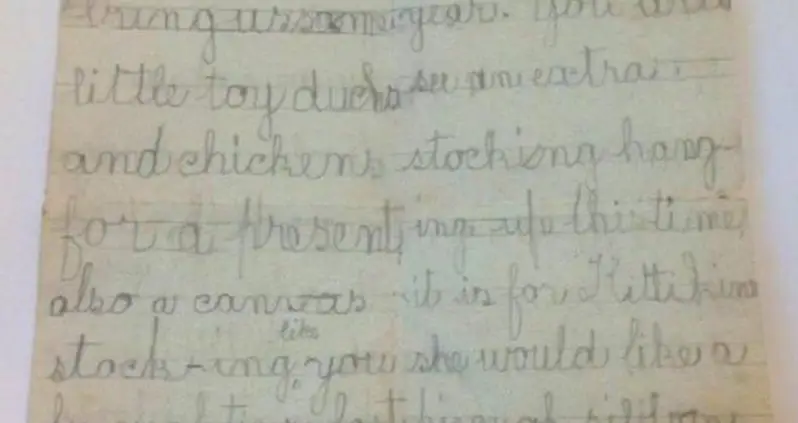 bring us some
little toy ducks
and chickens
for a present,
also a canvas
like
stock-ing, you
year. You will
see an extra
stocking hang-
ing up this time,
it is for Kittikins
she would like a